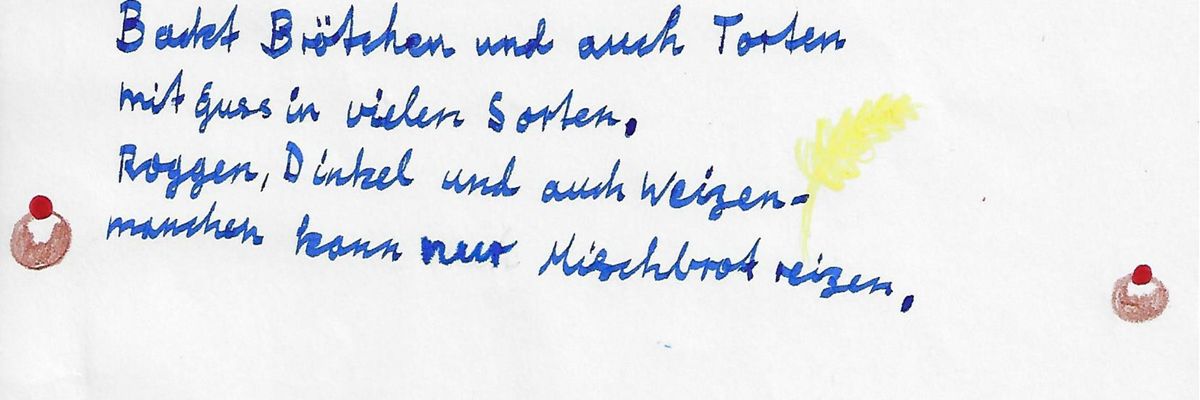 Backt Brötchen und auch Torten
mit Guss in vielen Sorten.
Roggen, Dinkel und auch Weizen-
manchen kann nur Mischbrot reizen.